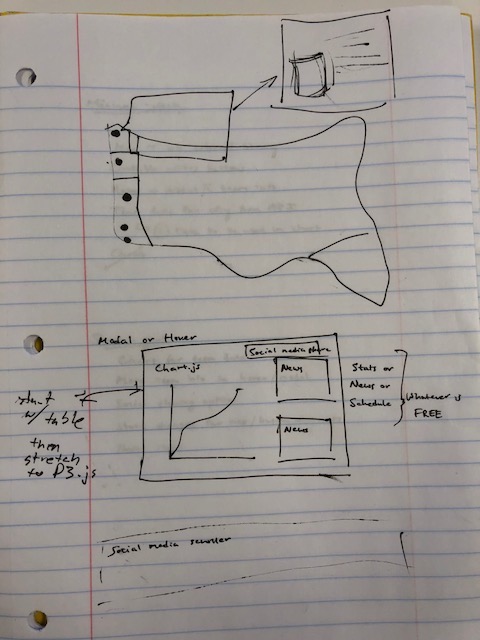 Modal or Hover
Social media share
Chart.js
News
News
Stats or
News or
Schedule
Whatever is
FREE
start
w/ table
then
stretch
to D3.js
Social media scroller